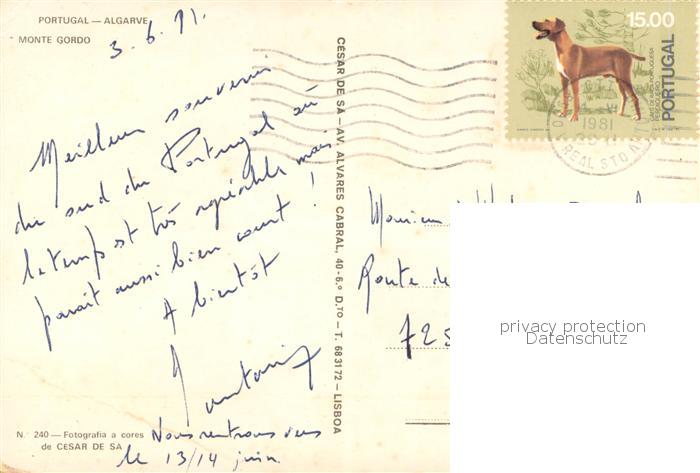 PORTUGAL — ALGARVE
MONTE GORDO
3.6.81.
Meilleur souvenir
du sud du Portugal où
le temps est très agréable mais
paraît aussi bien court !
A bientôt
Nous rentrons vers
le 13/14 juin.
N.º 240 — Fotografia a cores
de CESAR DE SA
CÉSAR DE SÁ — AV. ALVARES CABRAL, 40-6.º D.TO — T. 683172 — LISBOA
15.00
PORTUGAL
1981
REAL STO ANT
Monsieur
Route de
725
privacy protection
Datenschutz